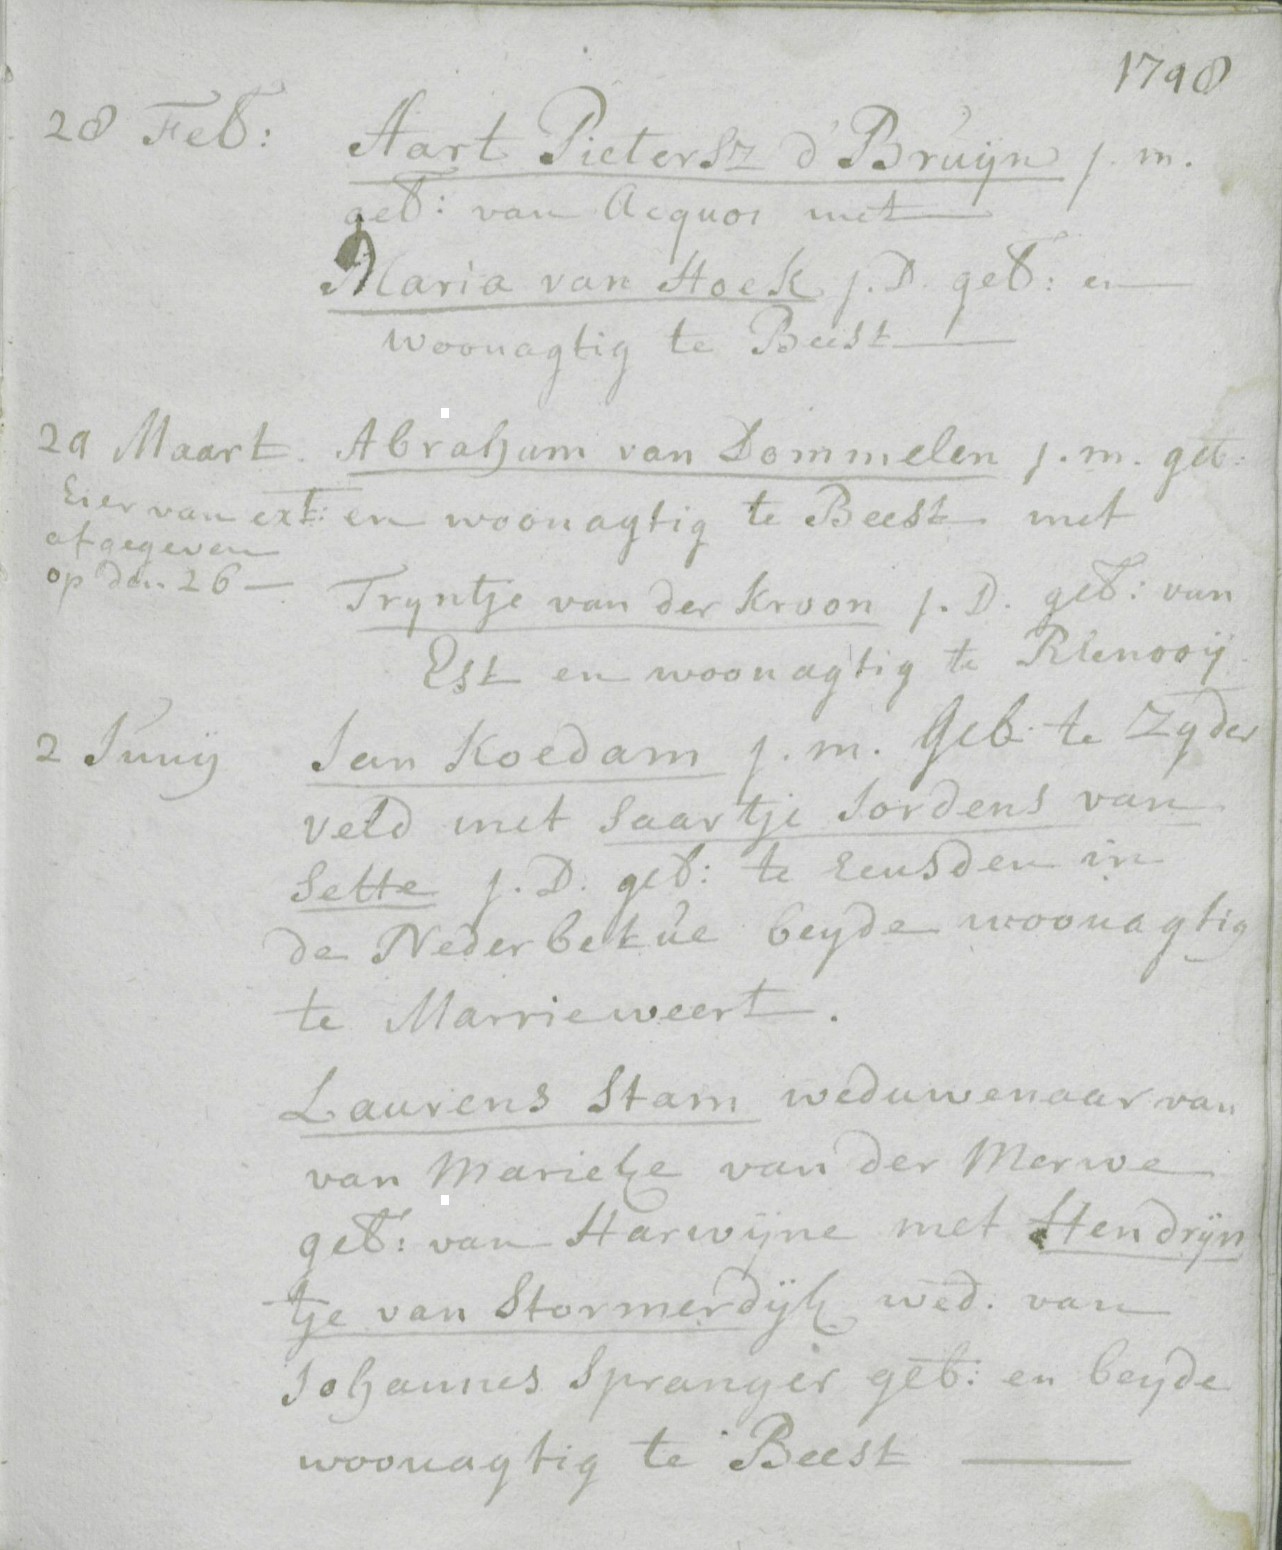 1798
28 Feb: Aart Pietersz d'Bruijn j. m.
geb: van Acquoi met
Maria van Hoek j. D. geb: en
woonagtig te Beest
29 Maart. Abraham van Dommelen j. m. geb:
Hier van ext: en woonagtig te Beest met
afgegeven
op den 26 — Tryntje van der Kroon j. D. geb: van
Est en woonagtig te Rhenooij
2 Junij Jan Koedam j. m. Geb. te Zyder
veld met Saartje Jordens van
Sette j. D. geb: te Heusden in
de Nederbetúe beyde woonagtig
te Marrieweert.
Laurens Stam weduwenaar van
van Marieke van der Merwe
geb: van Harwijne met Hendrijn
tje van Stormerdijk wed. van
Johannes Spranger geb: en beyde
woonagtig te Beest